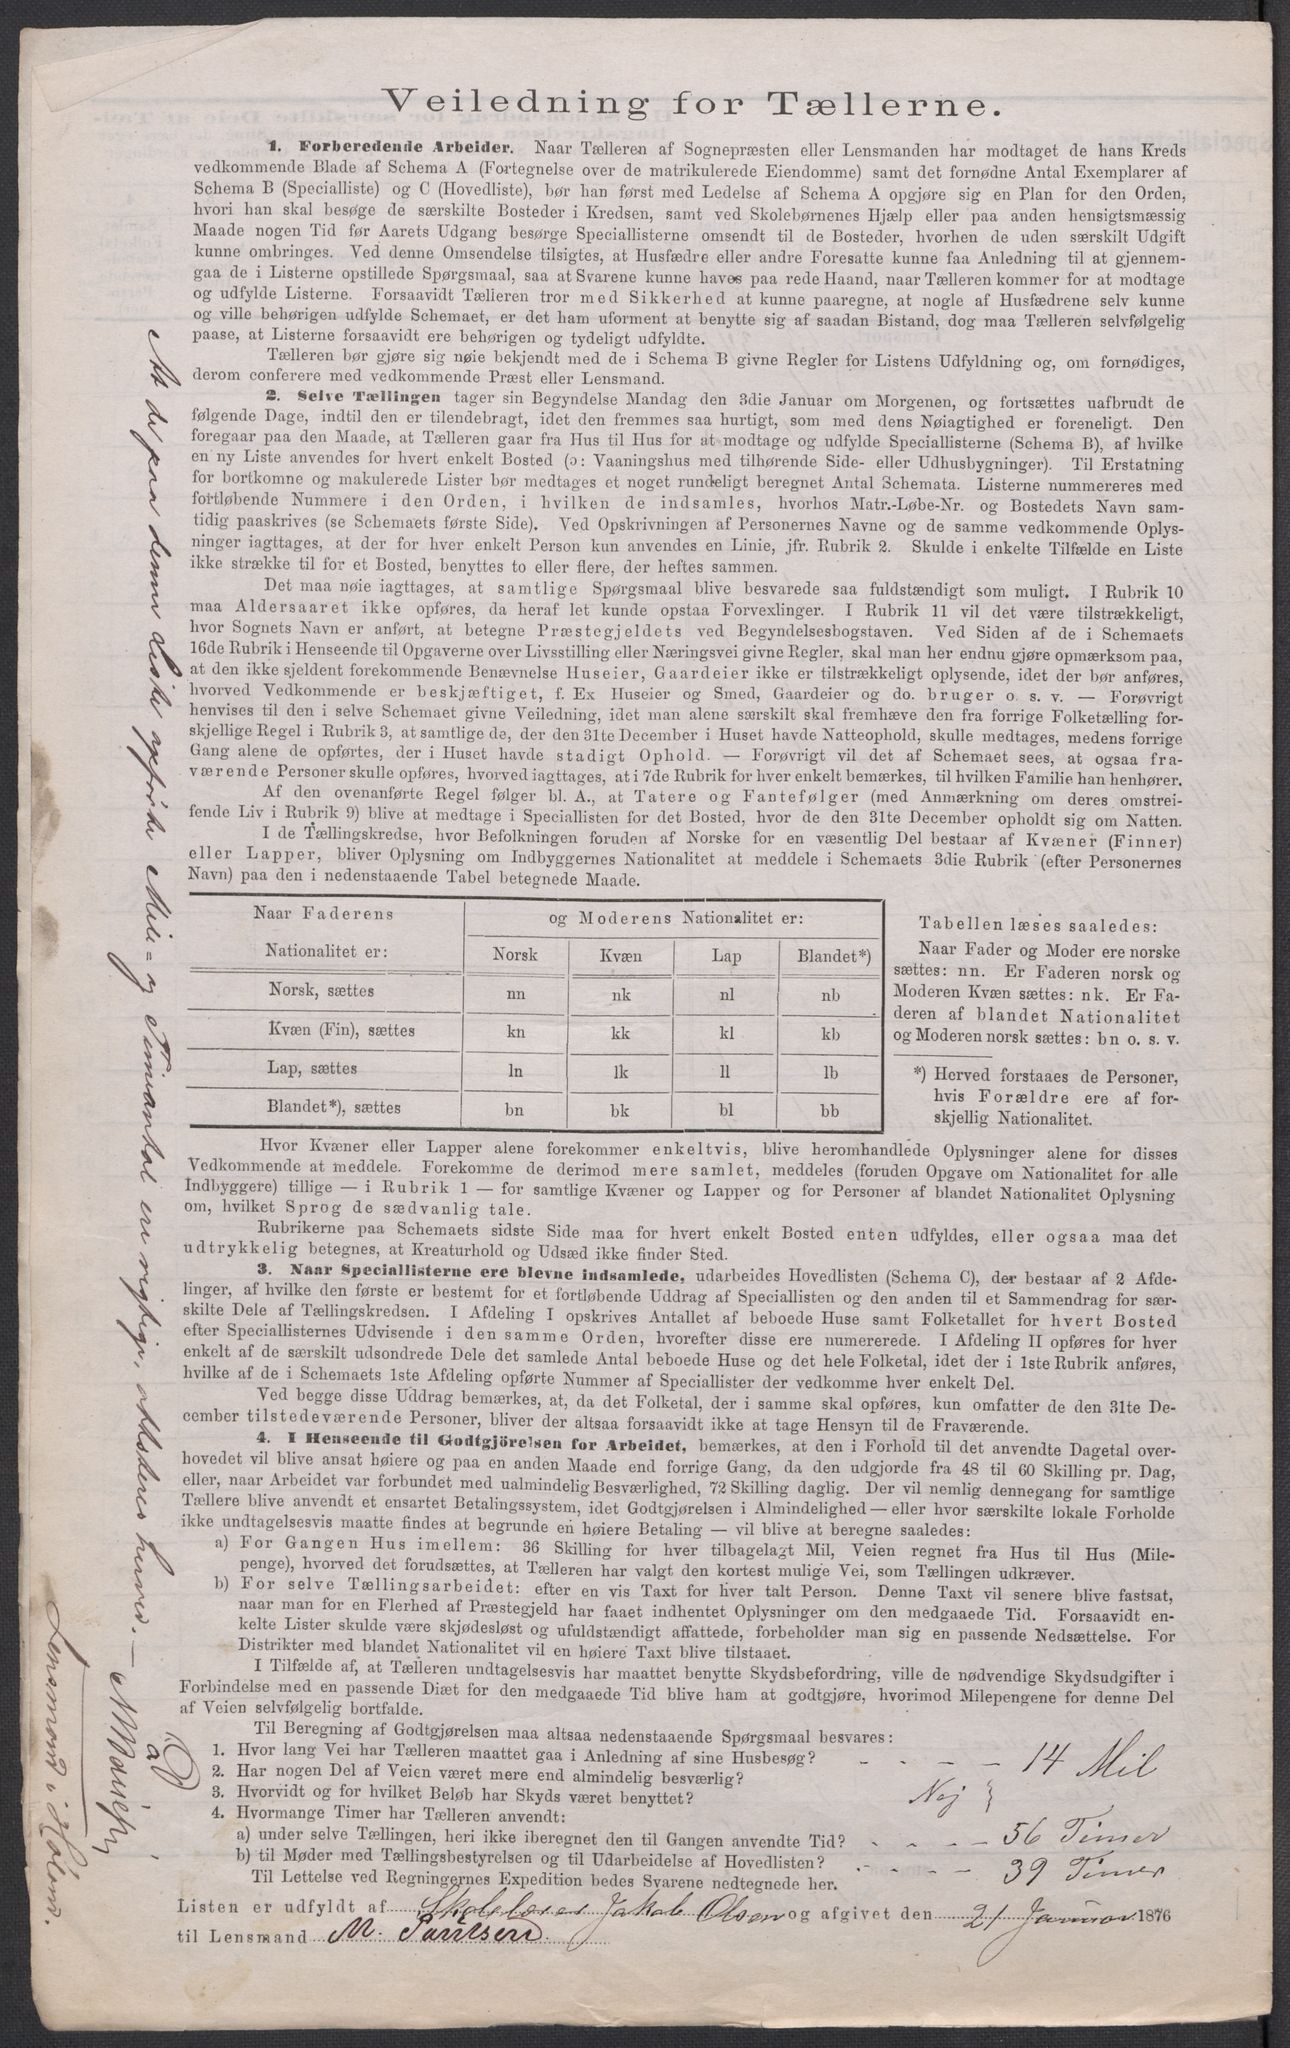 Veiledning for Tællerne.
1. Forberedende Arbeider. Naar Tælleren af Sognepræsten eller Lensmanden har modtaget de hans Kreds
vedkommende Blade af Schema A (Fortegnelse over de matrikulerede Eiendomme) samt det fornødne Antal Exemplarer af
Schema B (Specialliste) og C (Hovedliste), bør han først med Ledelse af Schema A opgjøre sig en Plan for den Orden,
hvori han skal besøge de særskilte Bosteder i Kredsen, samt ved Skolebørnenes Hjælp eller paa anden hensigtsmæssig
Maade nogen Tid før Aarets Udgang besørge Speciallisterne omsendt til de Bosteder, hvorhen de uden særskilt Udgift
kunne ombringes. Ved denne Omsendelse tilsigtes, at Husfædre eller andre Foresatte kunne faa Anledning til at gjennem-
gaa de i Listerne opstillede Spørgsmaal, saa at Svarene kunne haves paa rede Haand, naar Tælleren kommer for at modtage
og udfylde Listerne. Forsaavidt Tælleren tror med Sikkerhed at kunne paaregne, at nogle af Husfædrene selv kunne
og ville behørigen udfylde Schemaet, er det ham uforment at benytte sig af saadan Bistand, dog maa Tælleren selvfølgelig
paase, at Listerne forsaavidt ere behørigen og tydeligt udfyldte.
Tælleren bør gjøre sig nøie bekjendt med de i Schema B givne Regler for Listens Udfyldning og, om fornødiges,
derom conferere med vedkommende Præst eller Lensmand.
2. Selve Tællingen tager sin Begyndelse Mandag den 3die Januar om Morgenen, og fortsættes uafbrudt de
følgende Dage, indtil den er tilendebragt, idet den fremmes saa hurtigt, som med dens Nøiagtighed er foreneligt. Den
foregaar paa den Maade, at Tælleren gaar fra Hus til Hus for at modtage og udfylde Speciallisterne (Schema B), af hvilke
en ny Liste anvendes for hvert enkelt Bosted (ɔ: Vaaningshus med tilhørende Side- eller Udhusbygninger). Til Erstatning
for bortkomne og makulerede Lister bør medtages et noget rundeligt beregnet Antal Schemata. Listerne nummereres med
fortløbende Nummere i den Orden, i hvilken de indsamles, hvorhos Matr.-Løbe-Nr. og Bostedets Navn sam-
tidig paaskrives (se Schemaets første Side). Ved Opskrivningen af Personernes Navne og de samme vedkommende Oplys-
ninger iagttages, at der for hver enkelt Person kun anvendes en Linie, jfr. Rubrik 2. Skulde i enkelte Tilfælde en Liste
ikke strække til for et Bosted, benyttes to eller flere, der heftes sammen.
Det maa nøie iagttages, at samtlige Spørgsmaal blive besvarede saa fuldstændigt som muligt. I Rubrik 10
maa Aldersaaret ikke opføres, da heraf let kunde opstaa Forvexlinger. I Rubrik 11 vil det være tilstrækkeligt,
hvor Sognets Navn er anført, at betegne Præstegjeldets ved Begyndelsesbogstaven. Ved Siden af de i Schemaets
16de Rubrik i Henseende til Opgaverne over Livsstilling eller Næringsvei givne Regler, skal man her endnu gjøre opmærksom paa,
at den ikke sjeldent forekommende Benævnelse Huseier, Gaardeier ikke er tilstrækkeligt oplysende, idet der bør anføres,
hvorved Vedkommende er beskjæftiget, f. Ex Huseier og Smed, Gaardeier og do. bruger o. s. v. — Forøvrigt
henvises til den i selve Schemaet givne Veiledning, idet man alene særskilt skal fremhæve den fra forrige Folketælling for-
skjellige Regel i Rubrik 3, at samtlige de, der den 31te December i Huset havde Natteophold, skulle medtages, medens forrige
Gang alene de opførtes, der i Huset havde stadigt Ophold. — Forøvrigt vil det af Schemaet sees, at ogsaa fra-
værende Personer skulle opføres, hvorved iagttages, at i 7de Rubrik for hver enkelt bemærkes, til hvilken Familie han henhører.
Af den ovenanførte Regel følger bl. A., at Tatere og Fantefølger (med Anmærkning om deres omstrei-
fende Liv i Rubrik 9) blive at medtage i Speciallisten for det Bosted, hvor de den 31te December opholdt sig om Natten.
I de Tællingskredse, hvor Befolkningen foruden af Norske for en væsentlig Del bestaar af Kvæner (Finner)
eller Lapper, bliver Oplysning om Indbyggernes Nationalitet at meddele i Schemaets 3die Rubrik (efter Personernes
Navn) paa den i nedenstaaende Tabel betegnede Maade.
Naar Faderens Nationalitet er: og Moderens Nationalitet er:
Norsk Kvæn Lap Blandet*)
Norsk, sættes nn nk nl nb
Kvæn (Fin), sættes kn kk kl kb
Lap, sættes ln lk ll lb
Blandet*), sættes bn bk bl bb
Tabellen læses saaledes:
Naar Fader og Moder ere norske
sættes: nn. Er Faderen norsk og
Moderen Kvæn sættes: nk. Er Fa-
deren af blandet Nationalitet
og Moderen norsk sættes: bn o. s. v.
*) Herved forstaaes de Personer,
hvis Forældre ere af for-
skjellig Nationalitet.
Hvor Kvæner eller Lapper alene forekommer enkeltvis, blive heromhandlede Oplysninger alene for disses
Vedkommende at meddele. Forekomme de derimod mere samlet, meddeles (foruden Opgave om Nationalitet for alle
Indbyggere) tillige — i Rubrik 1 — for samtlige Kvæner og Lapper og for Personer af blandet Nationalitet Oplysning
om, hvilket Sprog de sædvanlig tale.
Rubrikerne paa Schemaets sidste Side maa for hvert enkelt Bosted enten udfyldes, eller ogsaa maa det
udtrykkelig betegnes, at Kreaturhold og Udsæd ikke finder Sted.
3. Naar Speciallisterne ere blevne indsamlede, udarbeides Hovedlisten (Schema C), der bestaar af 2 Afde-
linger, af hvilke den første er bestemt for et fortløbende Uddrag af Speciallisten og den anden til et Sammendrag for sær-
skilte Dele af Tællingskredsen. I Afdeling I opskrives Antallet af beboede Huse samt Folketallet for hvert Bosted
efter Speciallisternes Udvisende i den samme Orden, hvorefter disse ere numererede. I Afdeling II opføres for hver
enkelt af de særskilt udsondrede Dele det samlede Antal beboede Huse og det hele Folketal, idet der i 1ste Rubrik anføres,
hvilke af de i Schemaets 1ste Afdeling opførte Nummer af Speciallister der vedkomme hver enkelt Del.
Ved begge disse Uddrag bemærkes, at, da det Folketal, der i samme skal opføres, kun omfatter de den 31te De-
cember tilstedeværende Personer, bliver der altsaa forsaavidt ikke at tage Hensyn til de Fraværende.
4. I Henseende til Godtgjörelsen for Arbeidet, bemærkes, at den i Forhold til det anvendte Dagetal over-
hovedet vil blive ansat høiere og paa en anden Maade end forrige Gang, da den udgjorde fra 48 til 60 Skilling pr. Dag,
eller, naar Arbeidet var forbundet med ualmindelig Besværlighed, 72 Skilling daglig. Der vil nemlig dennegang for samtlige
Tællere blive anvendt et ensartet Betalingssystem, idet Godtgjørelsen i Almindelighed — eller hvor særskilte lokale Forholde
ikke undtagelsesvis maatte findes at begrunde en høiere Betaling — vil blive at beregne saaledes:
a) For Gangen Hus imellem: 36 Skilling for hver tilbagelagt Mil, Veien regnet fra Hus til Hus (Mile-
penge), hvorved det forudsættes, at Tælleren har valgt den kortest mulige Vei, som Tællingen udkræver.
b) For selve Tællingsarbeidet: efter en vis Taxt for hver talt Person. Denne Taxt vil senere blive fastsat,
naar man for en Flerhed af Præstegjeld har faaet indhentet Oplysninger om den medgaaede Tid. Forsaavidt en-
kelte Lister skulde være skjødesløst og ufuldstændigt affattede, forbeholder man sig en passende Nedsættelse. For
Distrikter med blandet Nationalitet vil en høiere Taxt blive tilstaaet.
I Tilfælde af, at Tælleren undtagelsesvis har maattet benytte Skydsbefordring, ville de nødvendige Skydsudgifter i
Forbindelse med en passende Diæt for den medgaaede Tid blive ham at godtgjøre, hvorimod Milepengene for denne Del
af Veien selvfølgelig bortfalde.
Til Beregning af Godtgjørelsen maa altsaa nedenstaaende Spørgsmaal besvares:
1. Hvor lang Vei har Tælleren maattet gaa i Anledning af sine Husbesøg? 14 Mil
2. Har nogen Del af Veien været mere end almindelig besværlig?
3. Hvorvidt og for hvilket Beløb har Skyds været benyttet? Nej
4. Hvormange Timer har Tælleren anvendt:
a) under selve Tællingen, heri ikke iberegnet den til Gangen anvendte Tid? 56 Timer
b) til Møder med Tællingsbestyrelsen og til Udarbeidelse af Hovedlisten? 39 Timer
Til Lettelse ved Regningernes Expedition bedes Svarene nedtegnede her.
Listen er udfyldt af Skolelærer Jakob Olsen og afgivet den 21 Januar 1876
til Lensmand M.
At de paa denne Liste opførte Mile= og Timeantal er rigtige, attesteres herved. —
Lensmand i Höland.